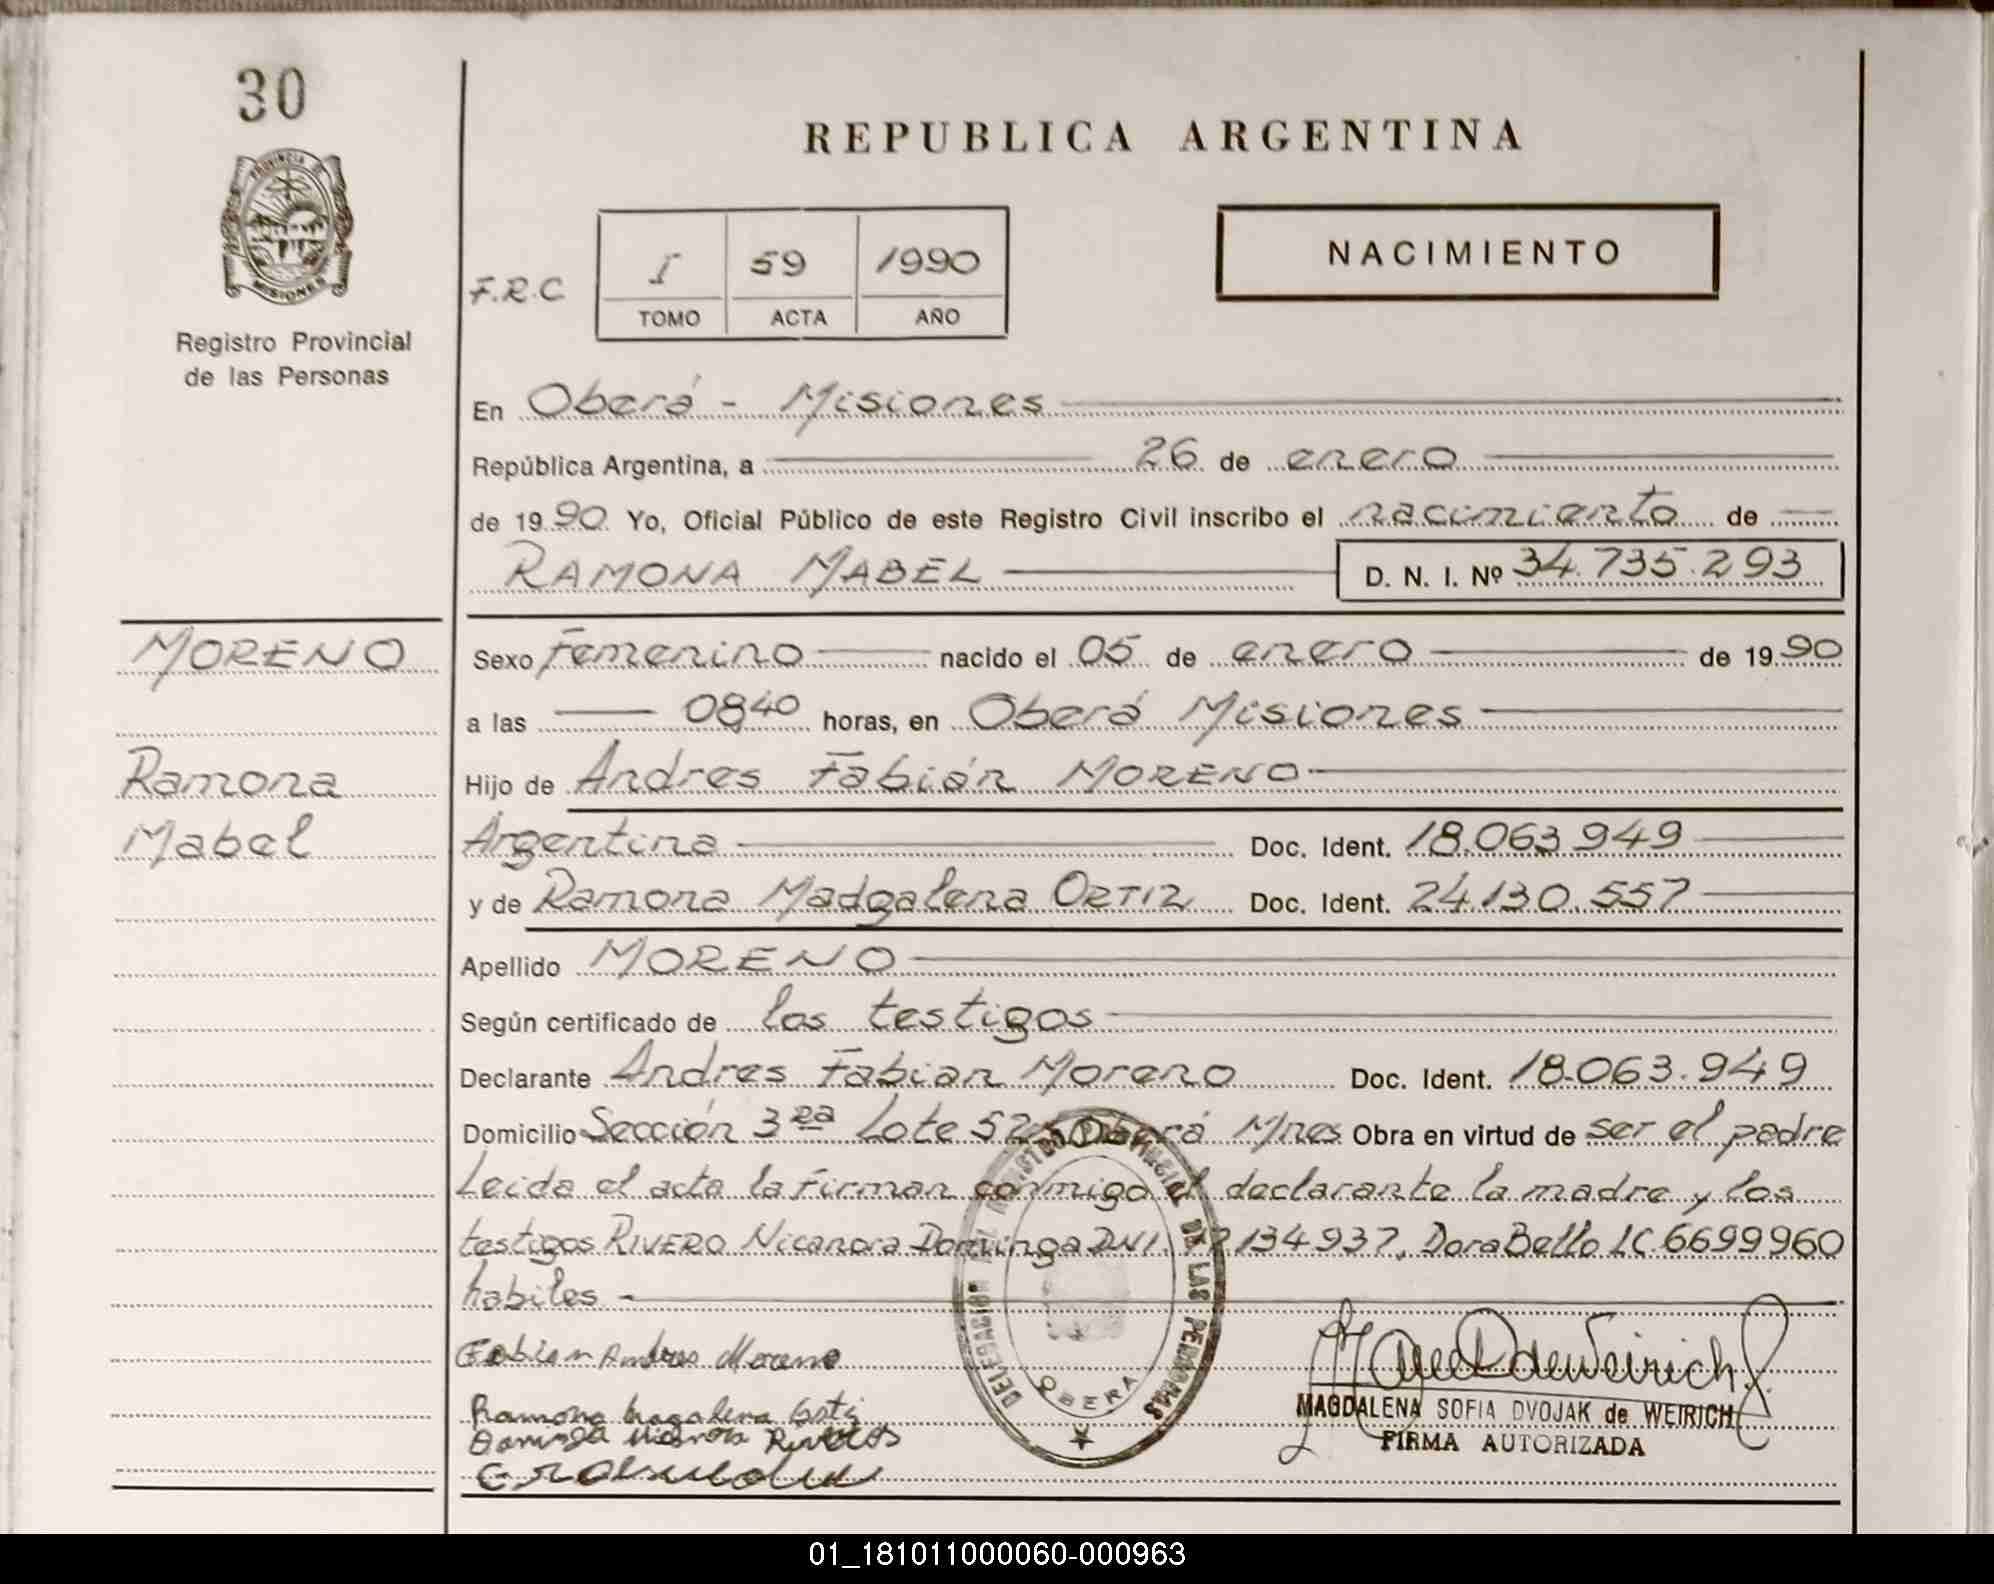 30
PROVINCIA
MISIONES
Registro Provincial
de las Personas
REPUBLICA ARGENTINA
NACIMIENTO
F.R.C
I 59 1990
TOMO ACTA AÑO
En Oberá - Misiones
República Argentina, a 26 de enero
de 1990. Yo, Oficial Público de este Registro Civil inscribo el nacimiento de
RAMONA MABEL D. N. I. Nº 34.735.293
MORENO
Ramona
Mabel
Sexo Femenino nacido el 05 de enero de 1990
a las 08⁴⁰ horas, en Oberá Misiones
Hijo de Andres Fabián MORENO
Argentina Doc. Ident. 18.063.949
y de Ramona Madgalena ORTIZ Doc. Ident. 24.130.557
Apellido MORENO
Según certificado de los testigos
Declarante Andres Fabian Moreno Doc. Ident. 18.063.949
Domicilio Sección 3ra Lote 52 Oberá Mnes Obra en virtud de ser el padre
Leida el acta la firman conmigo el declarante la madre y los
testigos RIVERO Nicanora Dominga DNI. 134937, Dora Bello LC 6699960
habiles -
Fabian Andres Moreno
Ramona Magalena
DELEGACION DEL REGISTRO PROVINCIAL DE LAS PERSONAS
OBERA
MAGDALENA SOFIA DVOJAK de WEIRICH
FIRMA AUTORIZADA
01_181011000060-000963